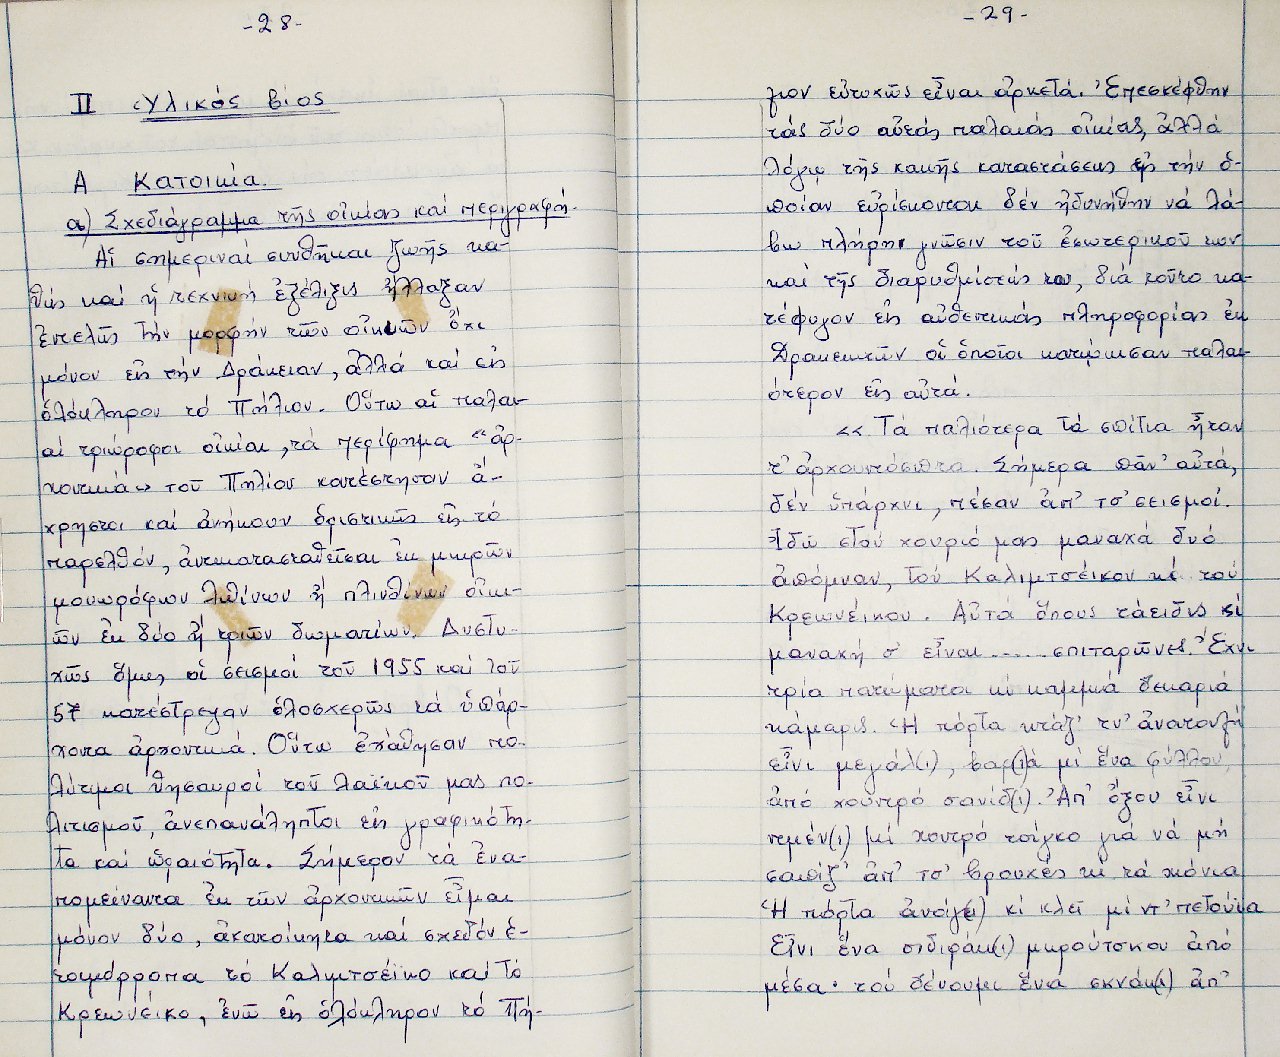 -28-
II Ὑλικός βίος
Α Κατοικία.
α) Σχεδιάγραμμα τῆς οἰκίας καί περιγραφή.
Αἱ σημεριναί συνθῆκαι ζωῆς κα-
θώς καί ἡ τεχνική ἐξέλιξις ἤλλαξαν
ἐντελῶς τήν μορφήν τῶν οἰκιῶν ὄχι
μόνον εἰς τήν Δράκειαν, ἀλλά καί εἰς
ὁλόκληρον τό Πήλιον. Οὕτω αἱ παλαι-
αί τριώροφοι οἰκίαι, τά περίφημα "ἀρ-
χοντικά" τοῦ Πηλίου κατέστησαν ἄ-
χρηστοι καί ἀνήκουν ὁριστικῶς εἰς τό
παρελθόν, ἀντικατασταθεῖσαι ἐκ μικρῶν
μονωρόφων λιθίνων ἤ πλινθίνων οἰκι-
ῶν ἐκ δύο ἤ τριῶν δωματίων. Δυστυ-
χῶς ὅμως οἱ σεισμοί τοῦ 1955 καί τοῦ
57 κατέστρεψαν ὁλοσχερῶς τά ὑπάρ-
χοντα ἀρχοντικά. Οὕτω ἐχάθησαν πο-
λύτιμοι θησαυροί τοῦ λαϊκοῦ μας πο-
λιτισμοῦ, ἀνεπανάληπτοι εἰς γραφικότη-
τα καί ὡραιότητα. Σήμερον τά ἐνα-
πομείναντα ἐκ τῶν ἀρχοντικῶν εἶναι
μόνον δύο, ἀκατοίκητα καί σχεδόν ἑ-
τοιμόρροπα τό Καλιμτσέϊκο καί τό
Κρεωνέικο, ἐνῶ εἰς ὁλόκληρον τό Πή-
-29-
λιον εὐτυχῶς εἶναι ἀρκετά. Ἐπεσκέφθην
τάς δύο αὐτάς παλαιάς οἰκίας, ἀλλά
λόγῳ τῆς κακῆς καταστάσεως εἰς τήν ὁ-
ποίαν εὑρίσκονται δέν ἠδυνήθην νά λά-
βω πλήρη γνῶσιν τοῦ ἐσωτερικοῦ των
καί τῆς διαρυθμίσεώς του, διά τοῦτο κα-
τέφυγον εἰς αὐθεντικάς πληροφορίας ἐκ
Δρακειωτῶν οἱ ὁποῖοι κατῴκησαν παλαι-
ότερον εἰς αὐτά.
<< Τά παλιότερα τά σπίτια ἦταν
τ' ἀρχουντόσπιτα. Σήμερα πᾶν' αὐτά,
δέν ὑπάρχνι, πέσαν ἀπ' τσ' σεισμοί.
Ἰδῶ στού χουριό μας μαναχά δυό
ἀπόμναν, τού Καλιμτσέικου κί τού
Κρεωνέικου. Αὐτά ὅπους τάειδις κί
μαναχή σ' εἶναι ...... σπιταρῶνες. Ἔχνι
τρία πατώματα κί καμμιά δεκαριά
κάμαρις. Ἡ πόρτα κτάζ' τν' ἀνατουλή
εἶνι μεγάλ(ι), βαρ(ι)ά μί ἕνα φύλλου,
ἀπό χουντρό σανίδ(ι). Ἀπ' ὄξου εἶνι
ντμέν(ι) μί χουντρό τσίγκο γιά νά μή
σαπίζ' ἀπ' τσ' βρουχές κί τά χιόνια
Ἡ πόρτα ἀνοίγ(ι) κί κλεῖ μί ντ' πετούγια
Εἶνι ἕνα σιδιράκ(ι) μικρούτσκου ἀπό
μέσα· τού δένουμι ἕνα σκνάκ(ι) ἀπ'